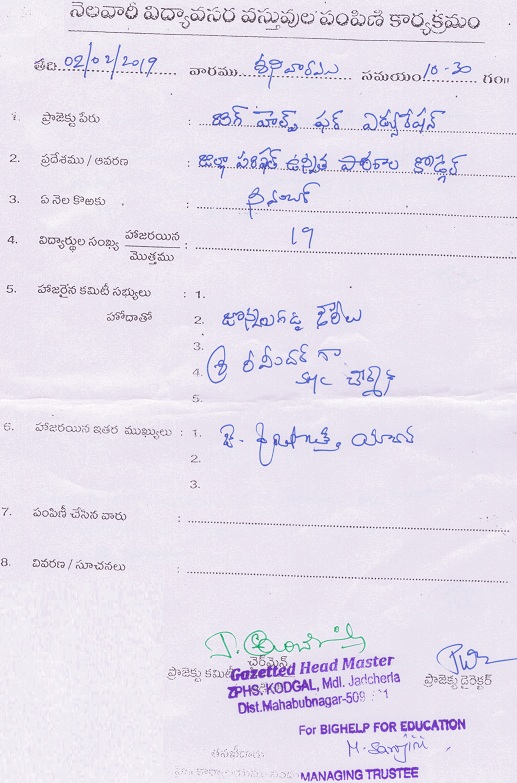 నెలవారీ విద్యావసర వస్తువుల పంపిణి కార్యక్రమం
తేది 02/02/2019 వారము శనివారము సమయం 10-30 గం॥
1. ప్రాజెక్టు పేరు : బిగ్ హెల్ప్ ఫర్ ఎడ్యుకేషన్
2. ప్రదేశము / ఆవరణ : జిల్లా పరిషత్ ఉన్నత పాఠశాల కొడ్గల్
3. ఏ నెల కొఱకు :
4. విద్యార్థుల సంఖ్య హాజరయిన : 19
మొత్తము
5. హాజరైన కమిటీ సభ్యులు : 1.
హోదాతో 2.
3.
4. శ్రీ రవీందర్ గా
SMC చైర్మన్
5.
6. హాజరయిన ఇతర ముఖ్యులు : 1.
2.
3.
7. పంపిణీ చేసిన వారు :
8. వివరణ / సూచనలు :
ప్రాజెక్టు కమిటీ చైర్మైన్
ప్రాజెక్టు డైరెక్టర్
Gazetted Head Master
ZPHS. KODGAL, Mdl. Jadcherla
Dist.Mahabubnagar-509
For BIGHELP FOR EDUCATION
M. Sarojini
MANAGING TRUSTEE